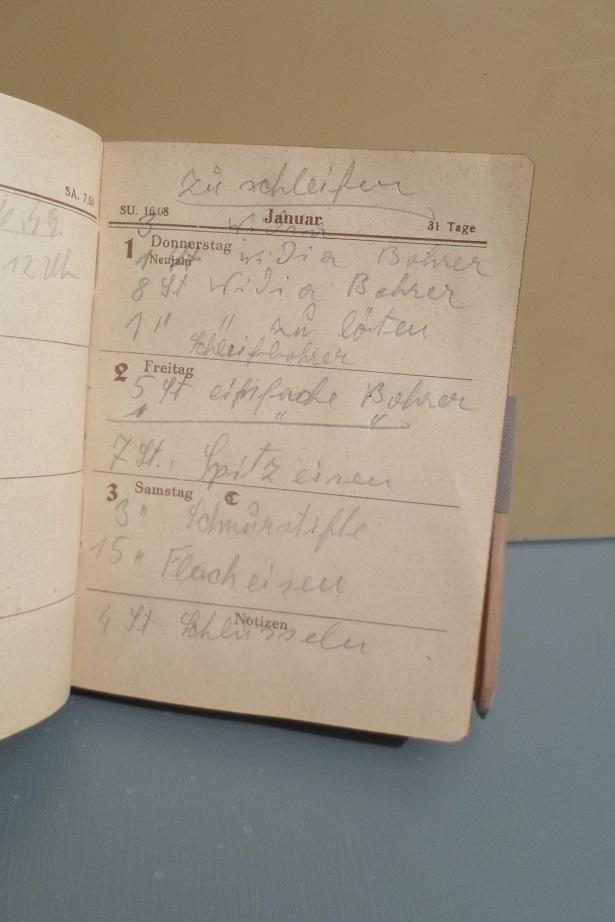 SA. 7.56
12 Uh
zu schleifen
SU. 16.08 Januar 31 Tage
3 Widia
1 Donnerstag
Neujahr
1 St Widia Bohrer
8 St Widia Bohrer
1 " " zu löten
Schleifbohrer
2 Freitag
5 St einfache Bohrer
" " "
7 St. Spitzeisen
3 Samstag
3 " Schnurstifte
15 " Flacheisen
Notizen
4 St Schlüsseln